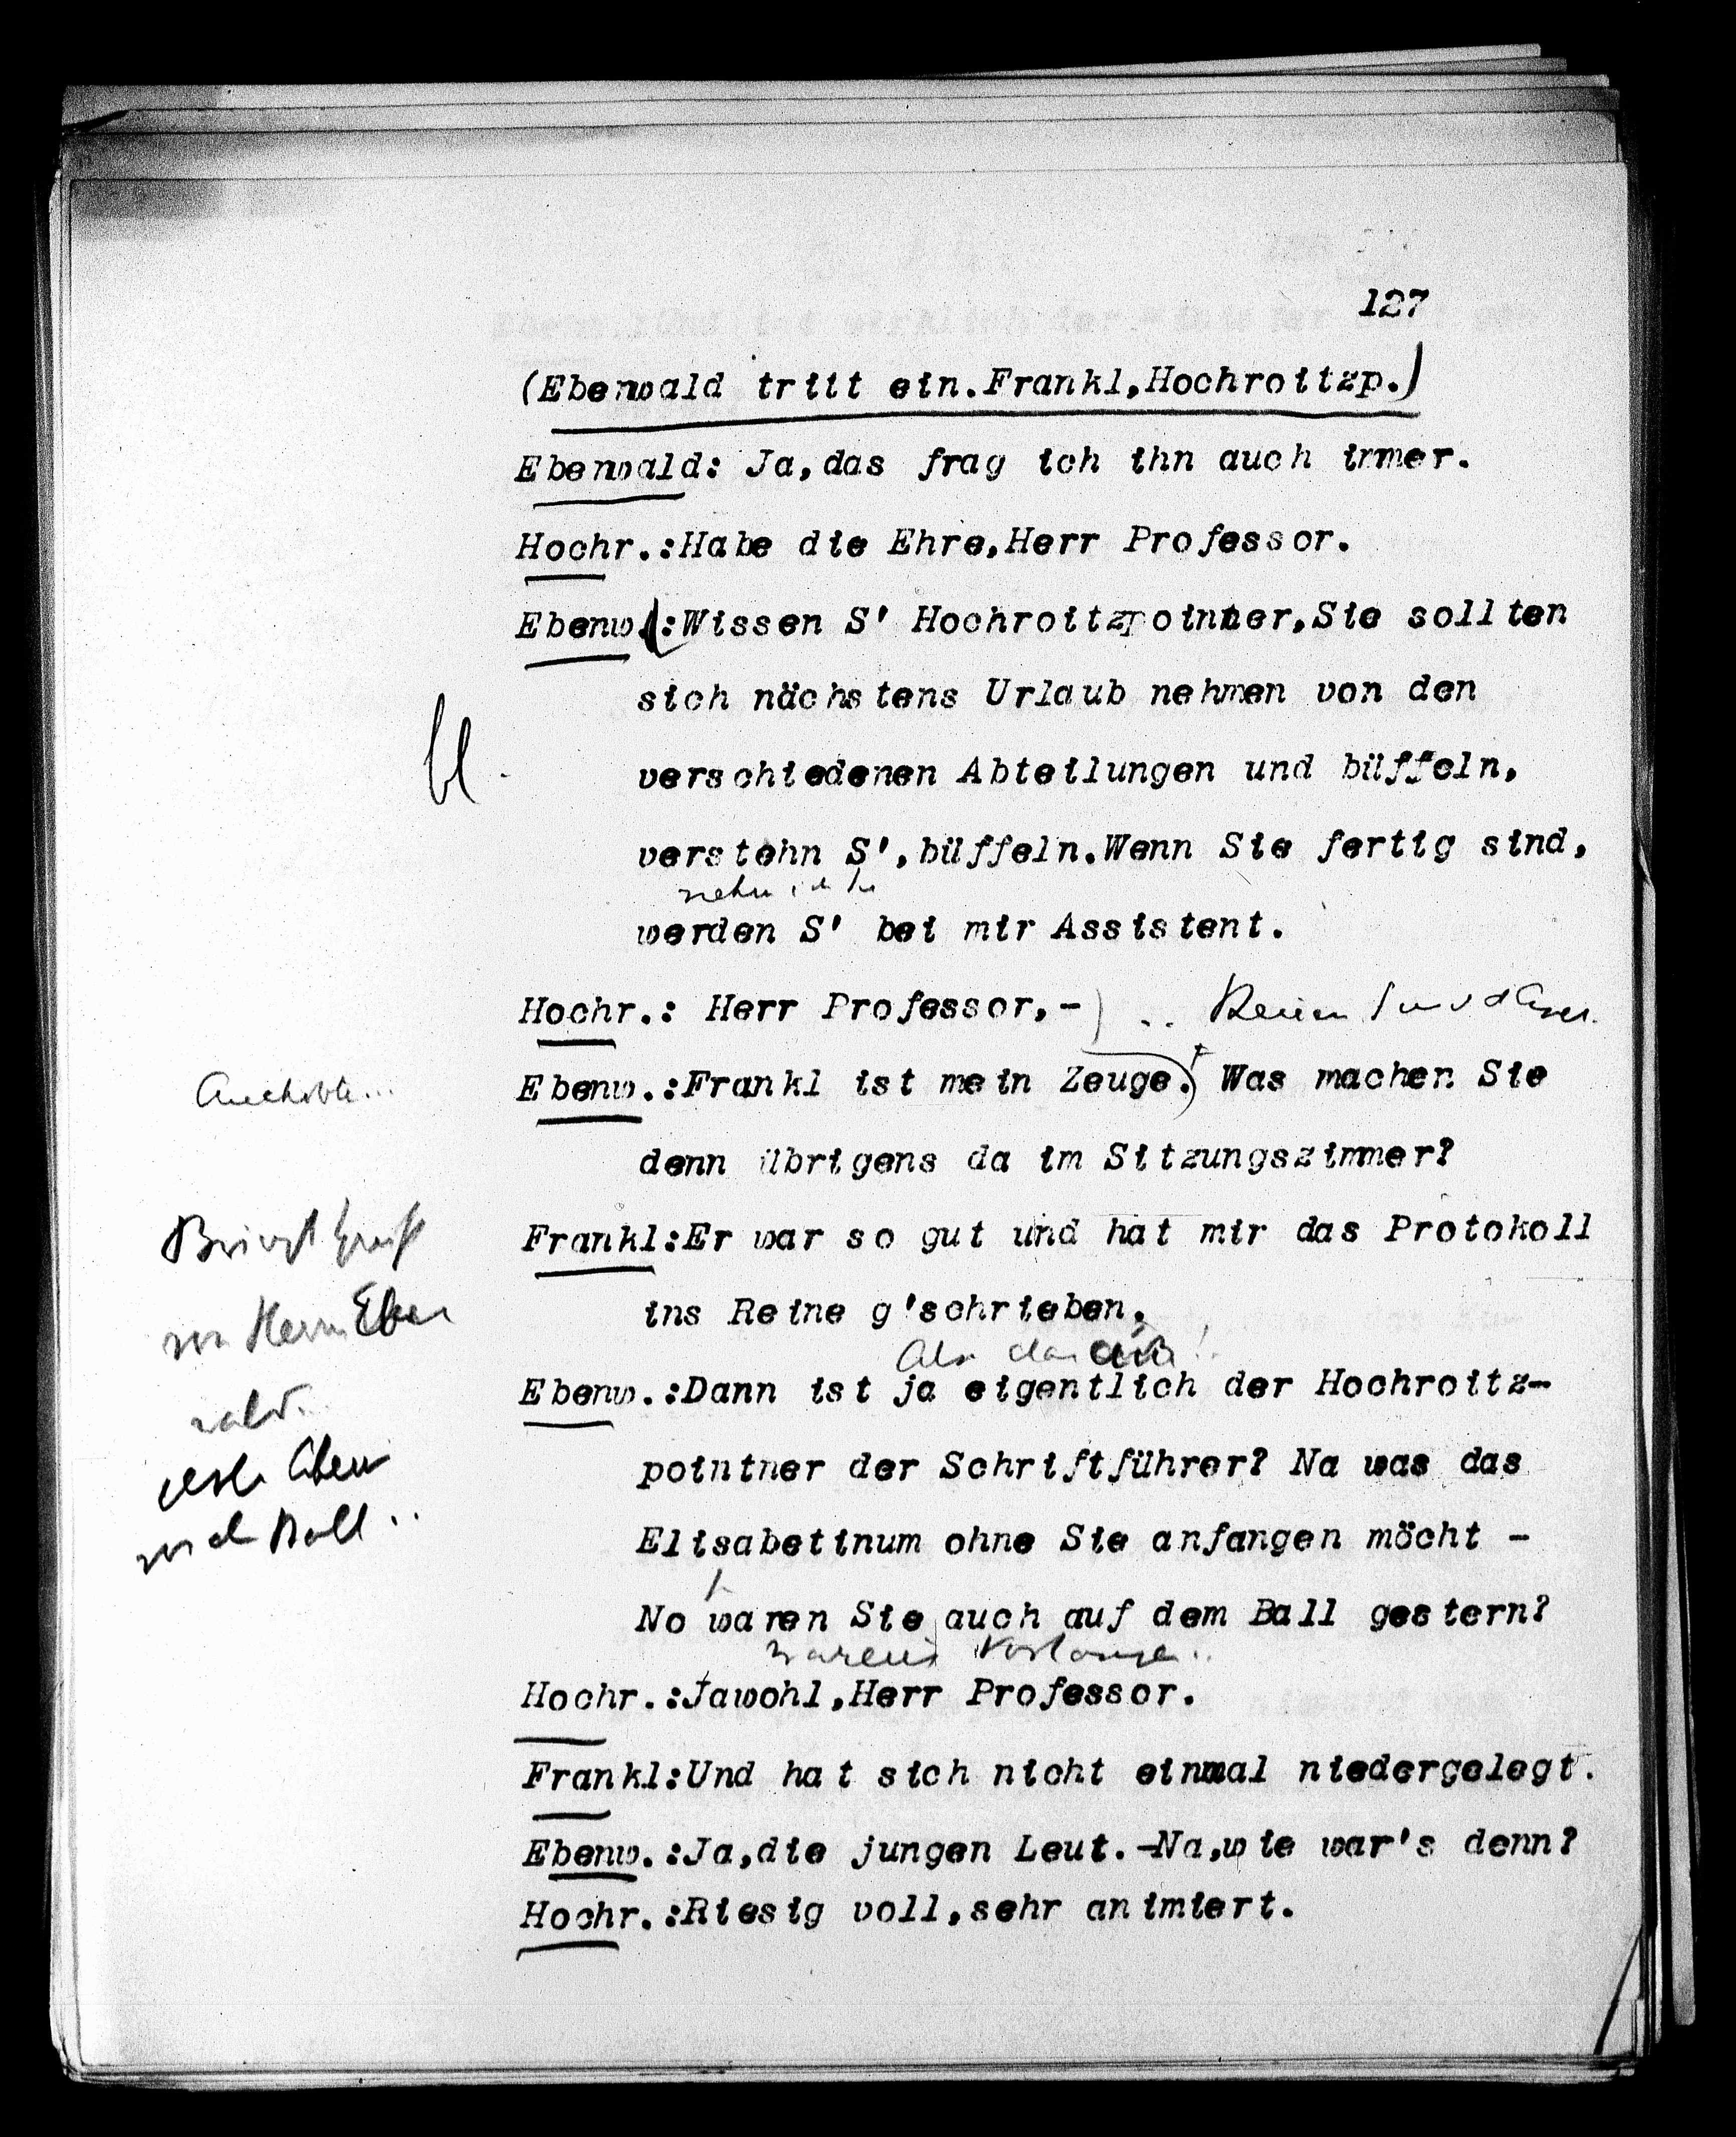 127
(Ebenwald tritt ein.Frankl,Hochroitzp.)
Ebenwald: Ja,das frag ich ihn auch immer.
Hochr.:Habe die Ehre,Herr Professor.
Ebenw.:Wissen S' Hochroitzpointner,Sie sollten
sich nächstens Urlaub nehmen von den
bl.
verschiedenen Abteilungen und büffeln,
verstehn S',büffeln.Wenn Sie fertig sind,
nehm ich Sie
werden S' bei mir Assistent.
Hochr.: Herr Professor,-
Ebenw.:Frankl ist mein Zeuge. Was machen Sie
denn übrigens da im Sitzungszimmer?
Frankl:Er war so gut und hat mir das Protokoll
ins Reine g'schrieben.
Also das auch!
Ebenw.:Dann ist ja eigentlich der Hochroitz-
pointner der Schriftführer? Na was das
Elisabetinum ohne Sie anfangen möcht -
No waren Sie auch auf dem Ball gestern?
Hochr.:Jawohl,Herr Professor.
Frankl:Und hat sich nicht einmal niedergelegt.
Ebenw.:Ja,die jungen Leut.-Na,wie war's denn?
Hochr.:Riesig voll,sehr animiert.